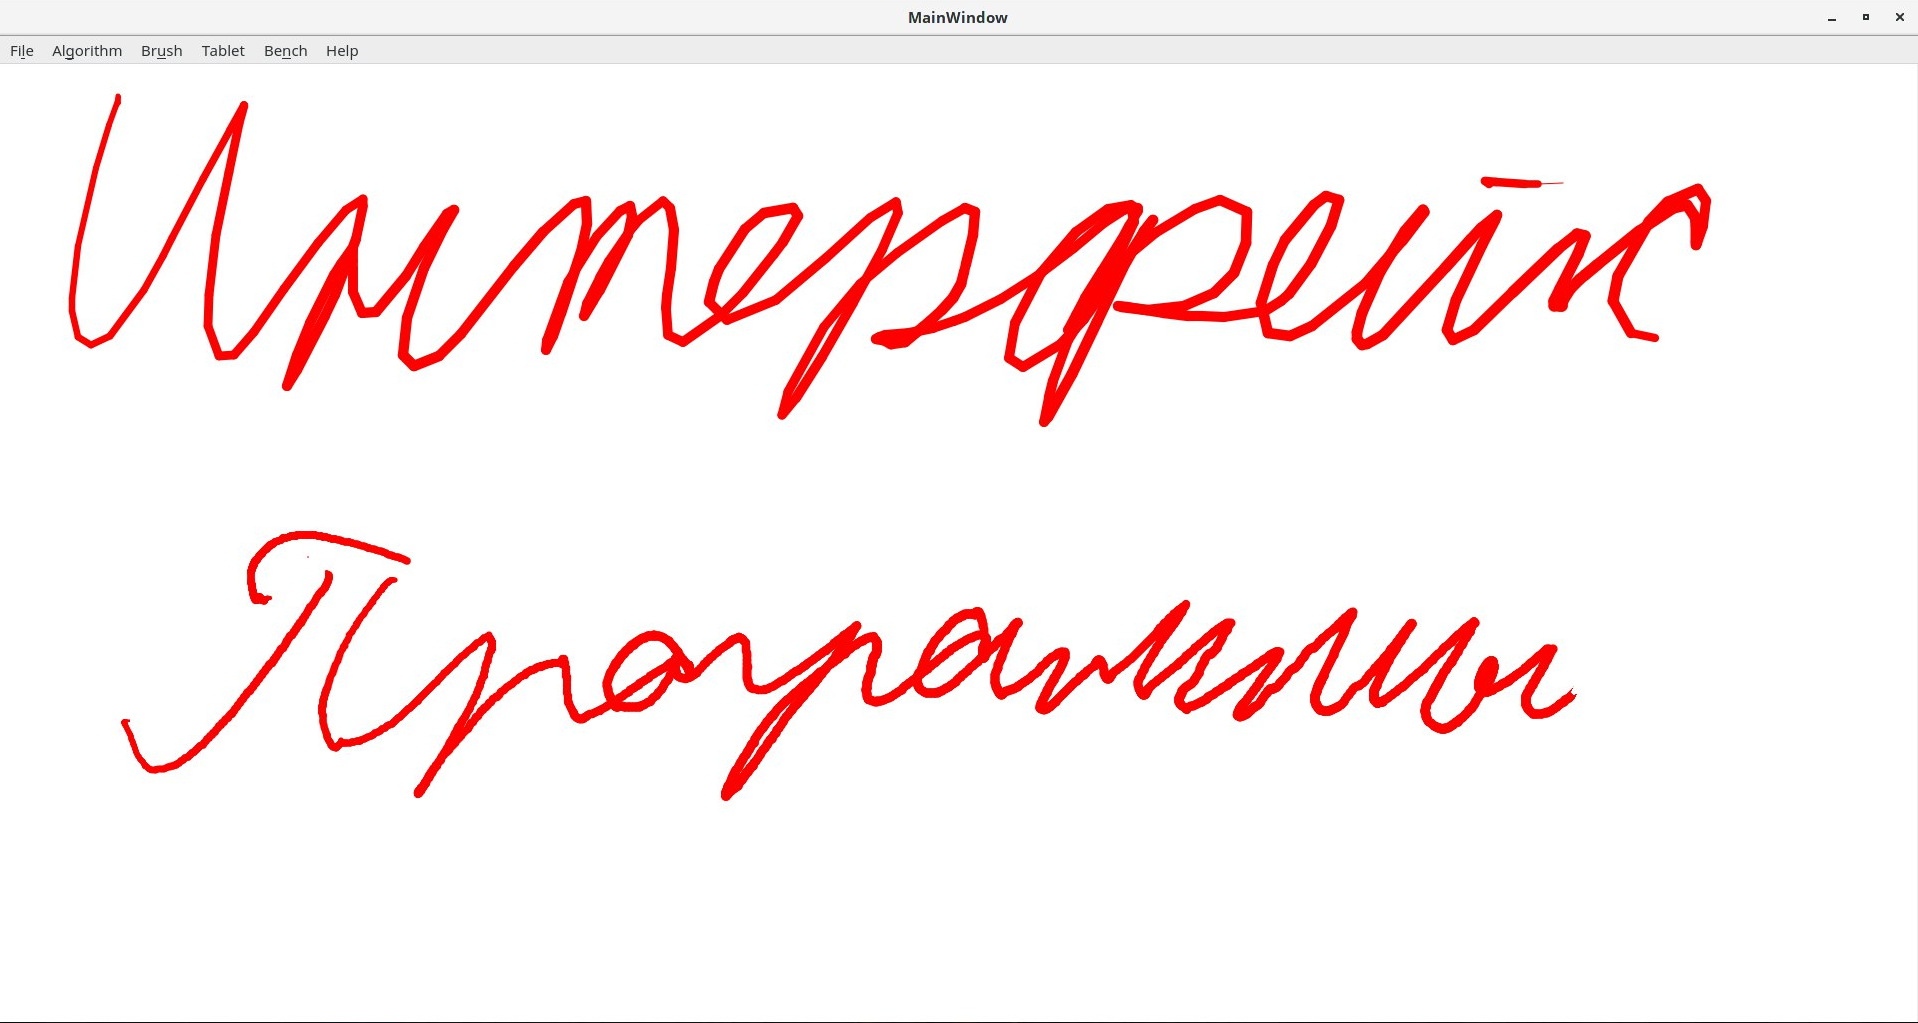 MainWindow
File Algorithm Brush Tablet Bench Help
Интерфейс
Программы